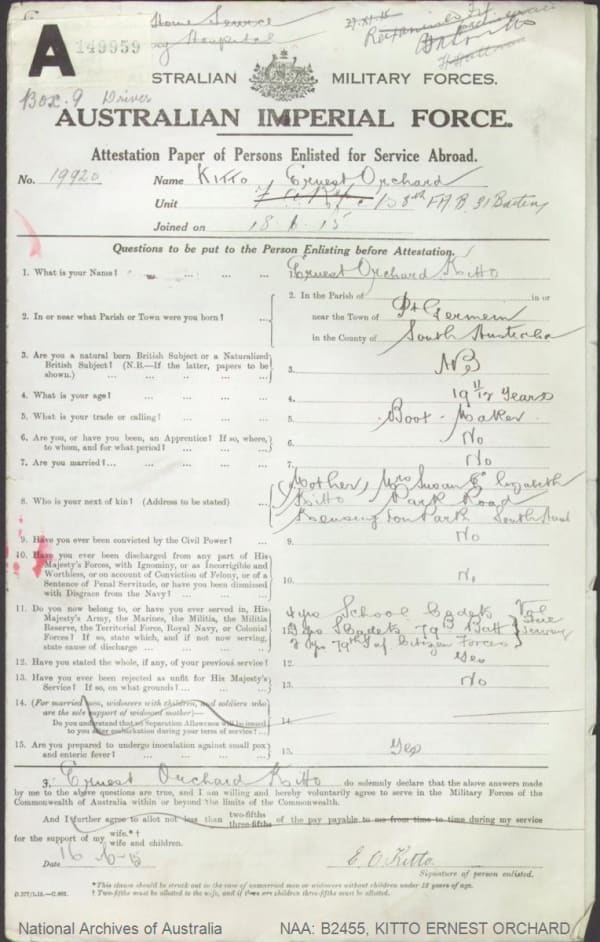 Home Service
A 149959
Hospital
27.XI.15
STRALIAN MILITARY FORCES.
Box. 9 Driver
AUSTRALIAN IMPERIAL FORCE.
Attestation Paper of Persons Enlisted for Service Abroad.
No. 19920 Name KITTO, Ernest Orchard
Unit FAB 31 Battery
Joined on 18.6.15
Questions to be put to the Person Enlisting before Attestation.
1. What is your Name? ... ... ... 1. Ernest Orchard Kitto
2. In or near what Parish or Town were you born? ... 2. In the Parish of in or
near the Town of Pt Germein
in the County of South Australia
3. Are you a natural born British Subject or a Naturalized
British Subject? (N.B.—If the latter, papers to be
shown.) ... ... ... ... 3. NBS
4. What is your age? ... ... ... ... 4. 19 11/12 Years
5. What is your trade or calling? ... ... ... 5. Boot-Maker.
6. Are you, or have you been, an Apprentice? If so, where,
to whom, and for what period? ... ... ... 6. No
7. Are you married? ... ... ... ... 7. No
8. Who is your next of kin? (Address to be stated) ... 8. Mother, Mrs Susan Elizabeth
Kitto Park Road
Kensington Park South Aust
9. Have you ever been convicted by the Civil Power? ... 9. No
10. Have you ever been discharged from any part of His
Majesty's Forces, with Ignominy, or as Incorrigible and
Worthless, or on account of Conviction of Felony, or of a
Sentence of Penal Servitude, or have you been dismissed
with Disgrace from the Navy? ... ... ... 10. No
11. Do you now belong to, or have you ever served in, His
Majesty's Army, the Marines, the Militia, the Militia
Reserve, the Territorial Force, Royal Navy, or Colonial
Forces? If so, state which, and if not now serving,
state cause of discharge ... ... ... 11. 4 yrs School Cadets
yrs Cadets 79th Batt
2 yrs 79th Inf. Citizen Forces
12. Have you stated the whole, if any, of your previous service? 12. Yes
13. Have you ever been rejected as unfit for His Majesty's
Service? If so, on what grounds? ... ... 13. No
14. (For married men, widowers with children, and soldiers who
are the sole support of widowed mother)—
Do you understand that no Separation Allowance will be issued
to you after embarkation during your term of service? ... 14.
15. Are you prepared to undergo inoculation against small pox
and enteric fever? ... ... ... ... 15. Yes
I, Ernest Orchard Kitto do solemnly declare that the above answers made
by me to the above questions are true, and I am willing and hereby voluntarily agree to serve in the Military Forces of the
Commonwealth of Australia within or beyond the limits of the Commonwealth.
And I further agree to allot not less than two-fifths three-fifths of the pay payable to me from time to time during my service
for the support of my wife.*† wife and children.
Date 16-6-15 E. O. Kitto
Signature of person enlisted.
*This clause should be struck out in the case of unmarried men or widowers without children under 18 years of age.
† Two-fifths must be allotted to the wife, and if there are children three-fifths must be allotted.
National Archives of Australia NAA: B2455, KITTO ERNEST ORCHARD